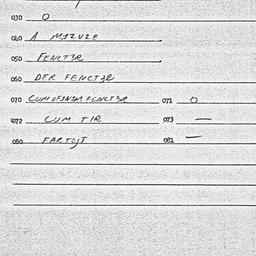 030 O
040 A MJZUZE
050 FENCT3R
060 DER FENCT3R
070 CUMOFJNJM FENCT3R 071 O
072 CUM TIR 073 —
080 FARTOJT 081 —